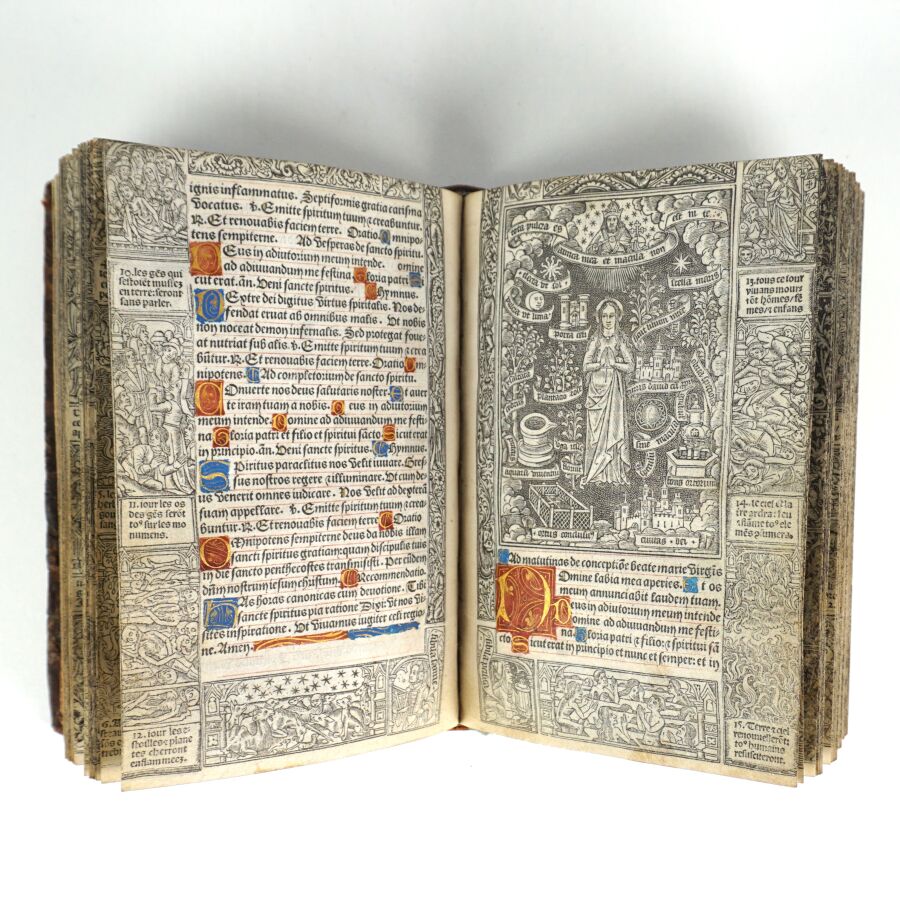 ignis inflammatus. Septiformis gratia carisma
vocatus. v. Emitte spiritum tuum & creabuntur
R. Et renovabis faciem terre. Oratio. Omnipo-
tens sempiterne. Ad vesperas de sancto spiritu.
Deus in adiutorium meum intende. omine
ad adiuvandum me festina Gloria patri
cut erat. añ. Veni sancte spiritus. Chymnus.
Dextre dei digitus virtus spiritalis. Nos de-
fendat eruat ab omnibus malis. Ut nobis
non noceat demon infernalis. Sed protegat foue-
at nutriat sub alis. v. Emitte spiritum tuum & crea
būtur. R. Et renovabis faciem terre. Oratio Om-
nipotens. Ad completorium de sancto spiritu.
Conuerte nos deus salutaris noster. Et auer
te iram tuam a nobis. Deus in adiutorium
meum intende. Domine ad adiuvandum me festi
na. Gloria patri et filio et spiritui sācto Sicut erat
in principio. añ. Veni sancte spiritus. Chymnus.
Spiritus paraclitus nos velit iuvare. Gres-
sus nostros regere & illuminare. Ut cum de-
us venerit omnes iudicare. Nos velit ad dexterā
suam appellare. v. Emitte spiritum tuum & crea
buntur. R. Et renovabis faciem terre Oratio
Omnipotens sempiterne deus da nobis illam
sancti spiritus gratiam: quam discipulis tuis
in die sancto penthecostes transmisisti. Per eūdem
dn̄m nostrum iesum christum. Recommendatio.
Has horas canonicas cum devotione. Tibi
sancte spiritus pia ratione Dixi: ut nos vi-
sites inspiratione. Et vivamus iugiter celi regio-
ne. Amen.
10. les gēs qui
seront mussez
en terre: seront
sans parler.
11. iour les os
des gēs serōt
to⁹ sur les mo
numens.
12. iour les e-
stoilles & plane
tes cherront
enflammees.
tota pulcra es
amica mea et macula non
est in te
electa ut sol
stella maris
porta celi
puteus aquarum viventium
ortus conclusus
civitas dei
Ad matutinas de conceptiōe beate marie virgīs
Domine labia mea aperies. Et os
meum annunciabit laudem tuam.
Deus in adiutorium meum intende
Domine ad adiuvandum me festi-
na. Gloria patri & filio: & spiritui sā
cto Sicut erat in principio et nunc et semper: et in
13. tous ce iour
viuans mour
rōt hōmes: fē
mes: & enfans
14. le ciel & la
terre ardra: leu
& flāme to⁹ ele
mēs plumera.
15. Terre & ciel
renouuelerēt:
to⁹ humains
resusciteront.